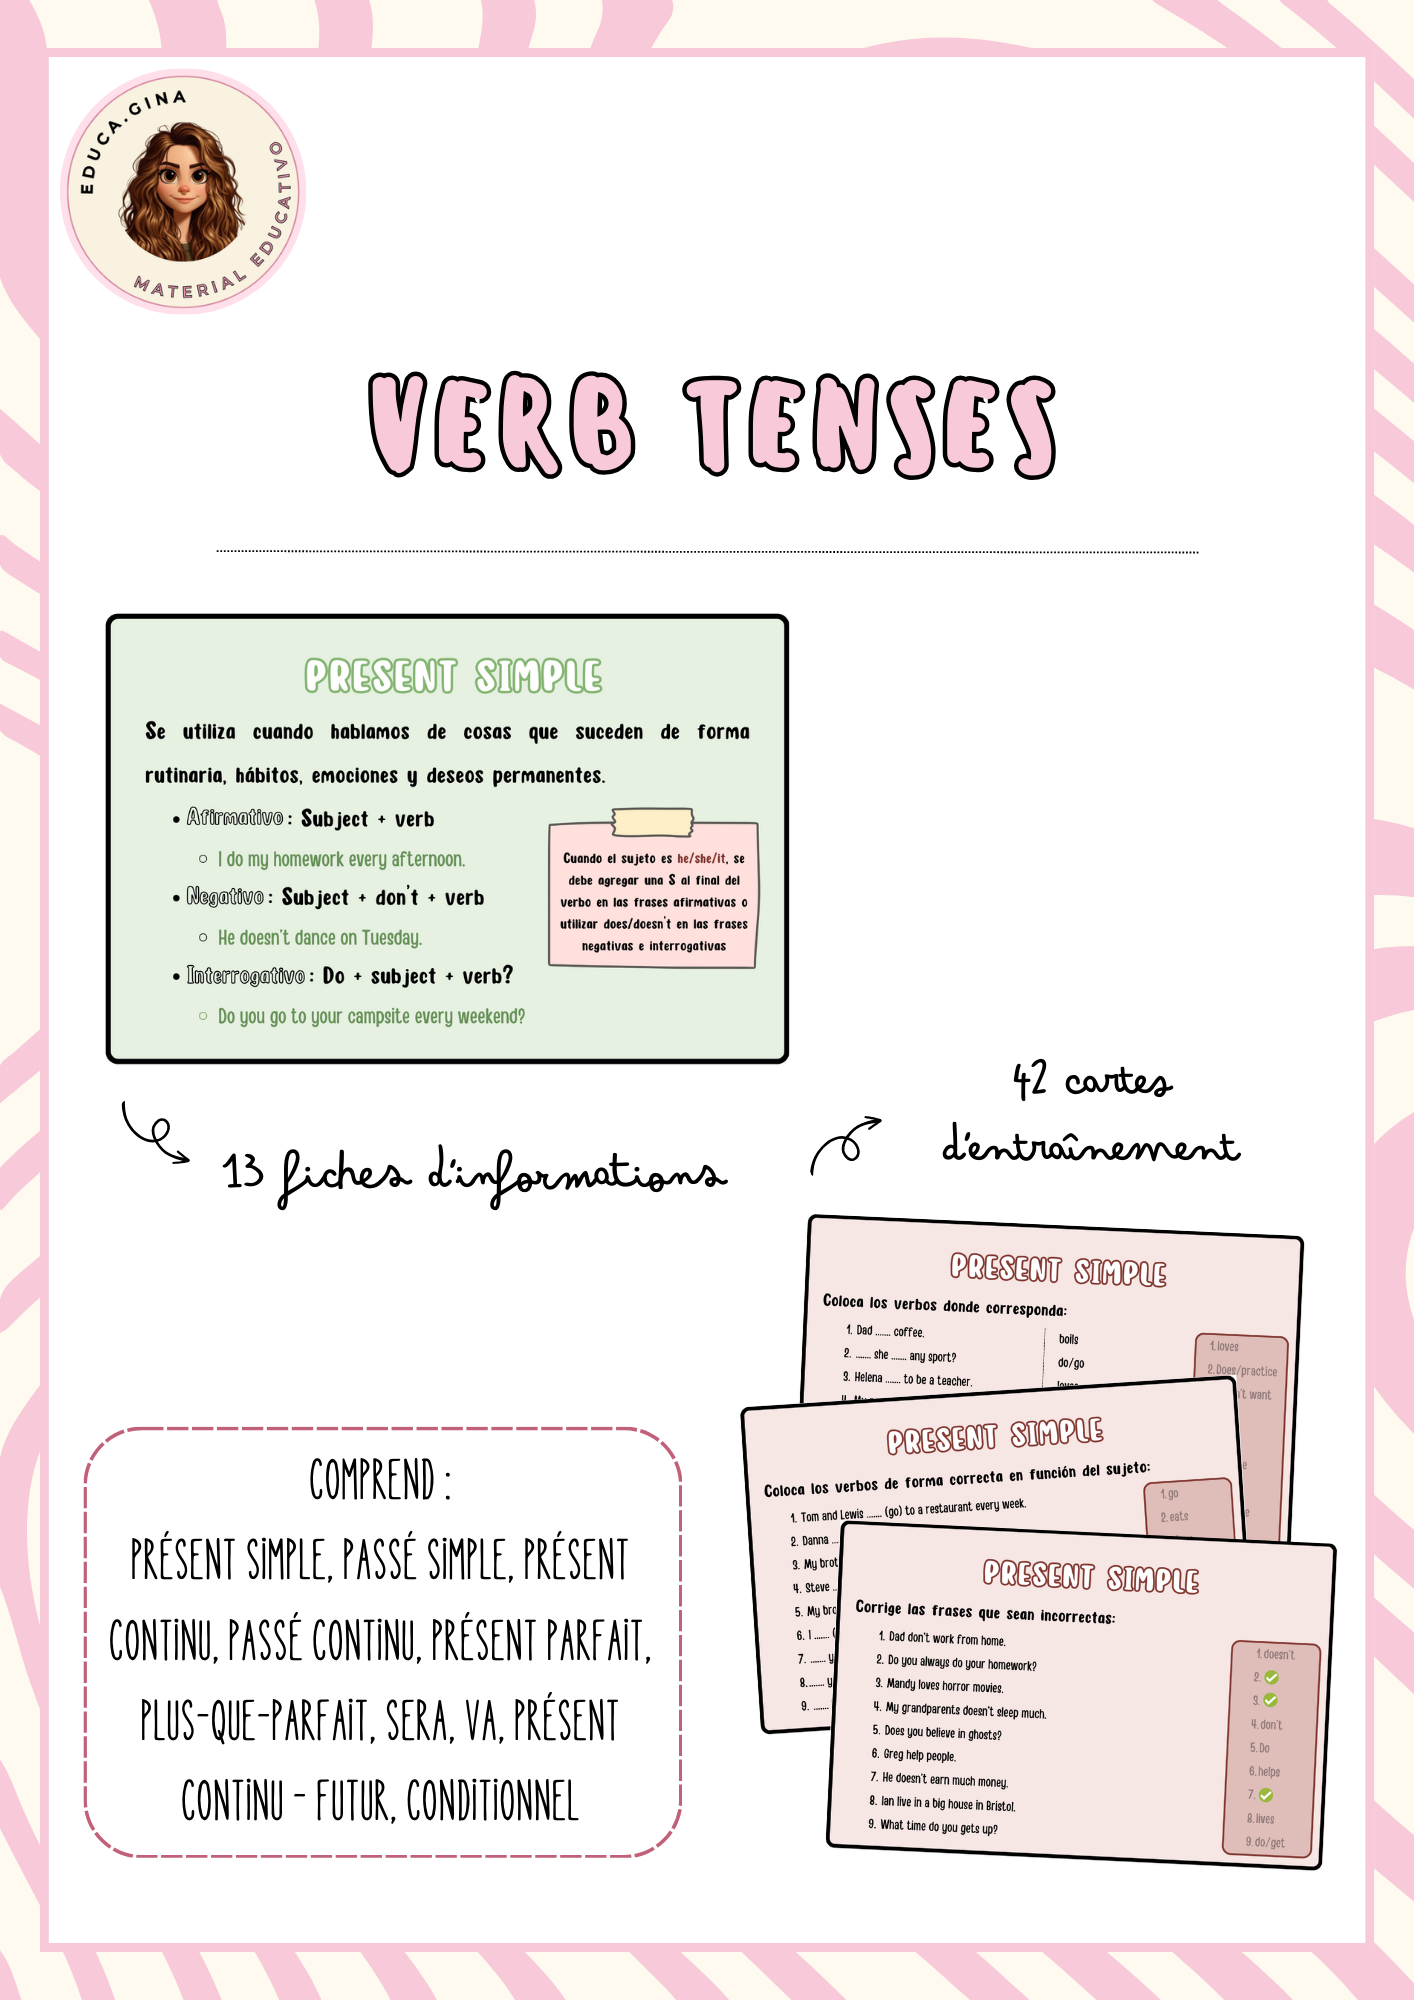 EDUCA.GINA
MATERIAL EDUCATIVO
VERB TENSES
PRESENT SIMPLE
Se utiliza cuando hablamos de cosas que suceden de forma
rutinaria, hábitos, emociones y deseos permanentes.
• Afirmativo: Subject + verb
○ I do my homework every afternoon.
• Negativo: Subject + don't + verb
○ He doesn't dance on Tuesday.
• Interrogativo: Do + subject + verb?
○ Do you go to your campsite every weekend?
Cuando el sujeto es he/she/it, se
debe agregar una S al final del
verbo en las frases afirmativas o
utilizar does/doesn't en las frases
negativas e interrogativas
13 fiches d'informations
42 cartes
d'entraînement
PRESENT SIMPLE
Coloca los verbos donde corresponda:
1. Dad ....... coffee.
2. ....... she ....... any sport?
3. Helena ....... to be a teacher.
boils
do/go
1. loves
2. Does/practice
't want
PRESENT SIMPLE
Coloca los verbos de forma correcta en función del sujeto:
1. Tom and Lewis ....... (go) to a restaurant every week.
2. Danna ...
3. My brot
4. Steve ..
5. My bro
6. I ....... (
7. ....... y
8. ....... y
9. .......
1. go
2. eats
PRESENT SIMPLE
Corrige las frases que sean incorrectas:
1. Dad don't work from home.
2. Do you always do your homework?
3. Mandy loves horror movies.
4. My grandparents doesn't sleep much.
5. Does you believe in ghosts?
6. Greg help people.
7. He doesn't earn much money.
8. Ian live in a big house in Bristol.
9. What time do you gets up?
1. doesn't
2. ✅
3. ✅
4. don't
5. Do
6. helps
7. ✅
8. lives
9. do/get
COMPREND :
PRÉSENT SIMPLE, PASSÉ SIMPLE, PRÉSENT
CONTINU, PASSÉ CONTINU, PRÉSENT PARFAIT,
PLUS-QUE-PARFAIT, SERA, VA, PRÉSENT
CONTINU - FUTUR, CONDITIONNEL